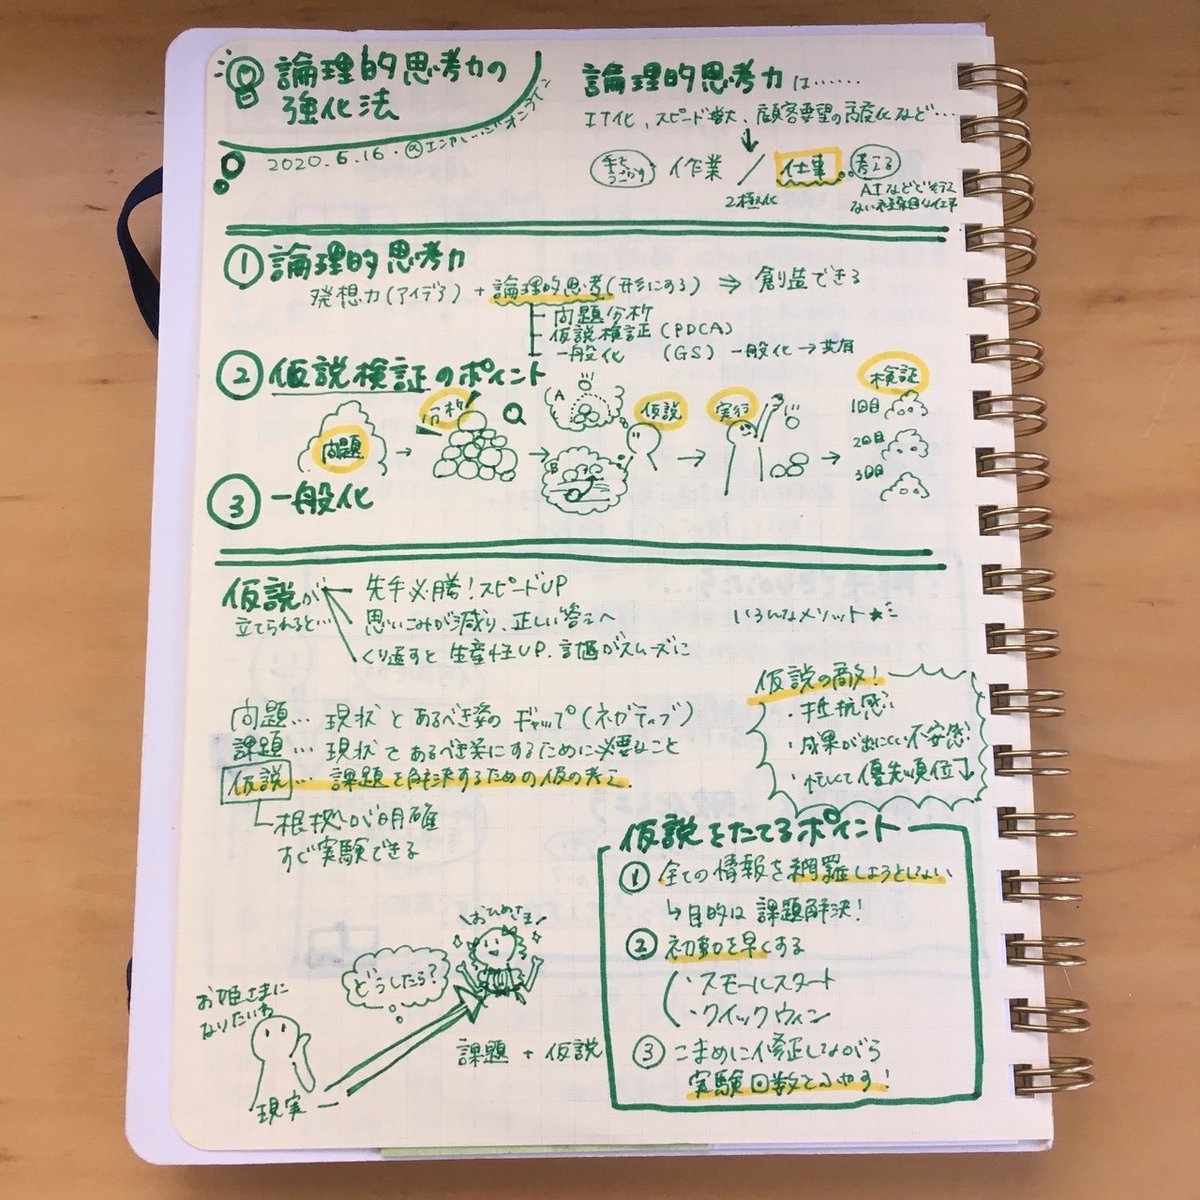 論理的思考力の
強化法
2020.5.16.@エンカレッジオンライン
論理的思考力は……
IT化、スピード増大、顧客要望の高度化など…
手を
うごかす
作業 / 仕事
考える
2極化
AIなどで
①論理的思考力
発想力(アイデア)+論理的思考(形にする)⇒創造できる
問題分析
仮説検証(PDCA)
一般化 (GS) 一般化→共有
②仮説検証のポイント
問題
→
分析
→
A
B
仮説
→
実行
→
検証
1回目
2回目
3回目
③一般化
仮説が
立てられると…
先手必勝!スピードUP
思いこみが減り、正しい答えへ
くり返すと生産性UP.計画がスムーズに
いろんなメリット★
問題…現状とあるべき姿のギャップ(ネガティブ)
課題…現状をあるべき姿にするために必要なこと
仮説…課題を解決するための仮の考え
根拠が明確
すぐ実験できる
仮説の敵!
・抵抗感
・成果が出にくい不安感
・忙しくて優先順位↓
仮説をたてるポイント
①全ての情報を網羅しようとしない
↳目的は課題解決!
②初動を早くする
・スモールスタート
・クイックウィン
③こまめに修正しながら
実験回数をふやす!
お姫さまに
なりたいわ
現実
どうしたら?
\おひめさま/
課題+仮説